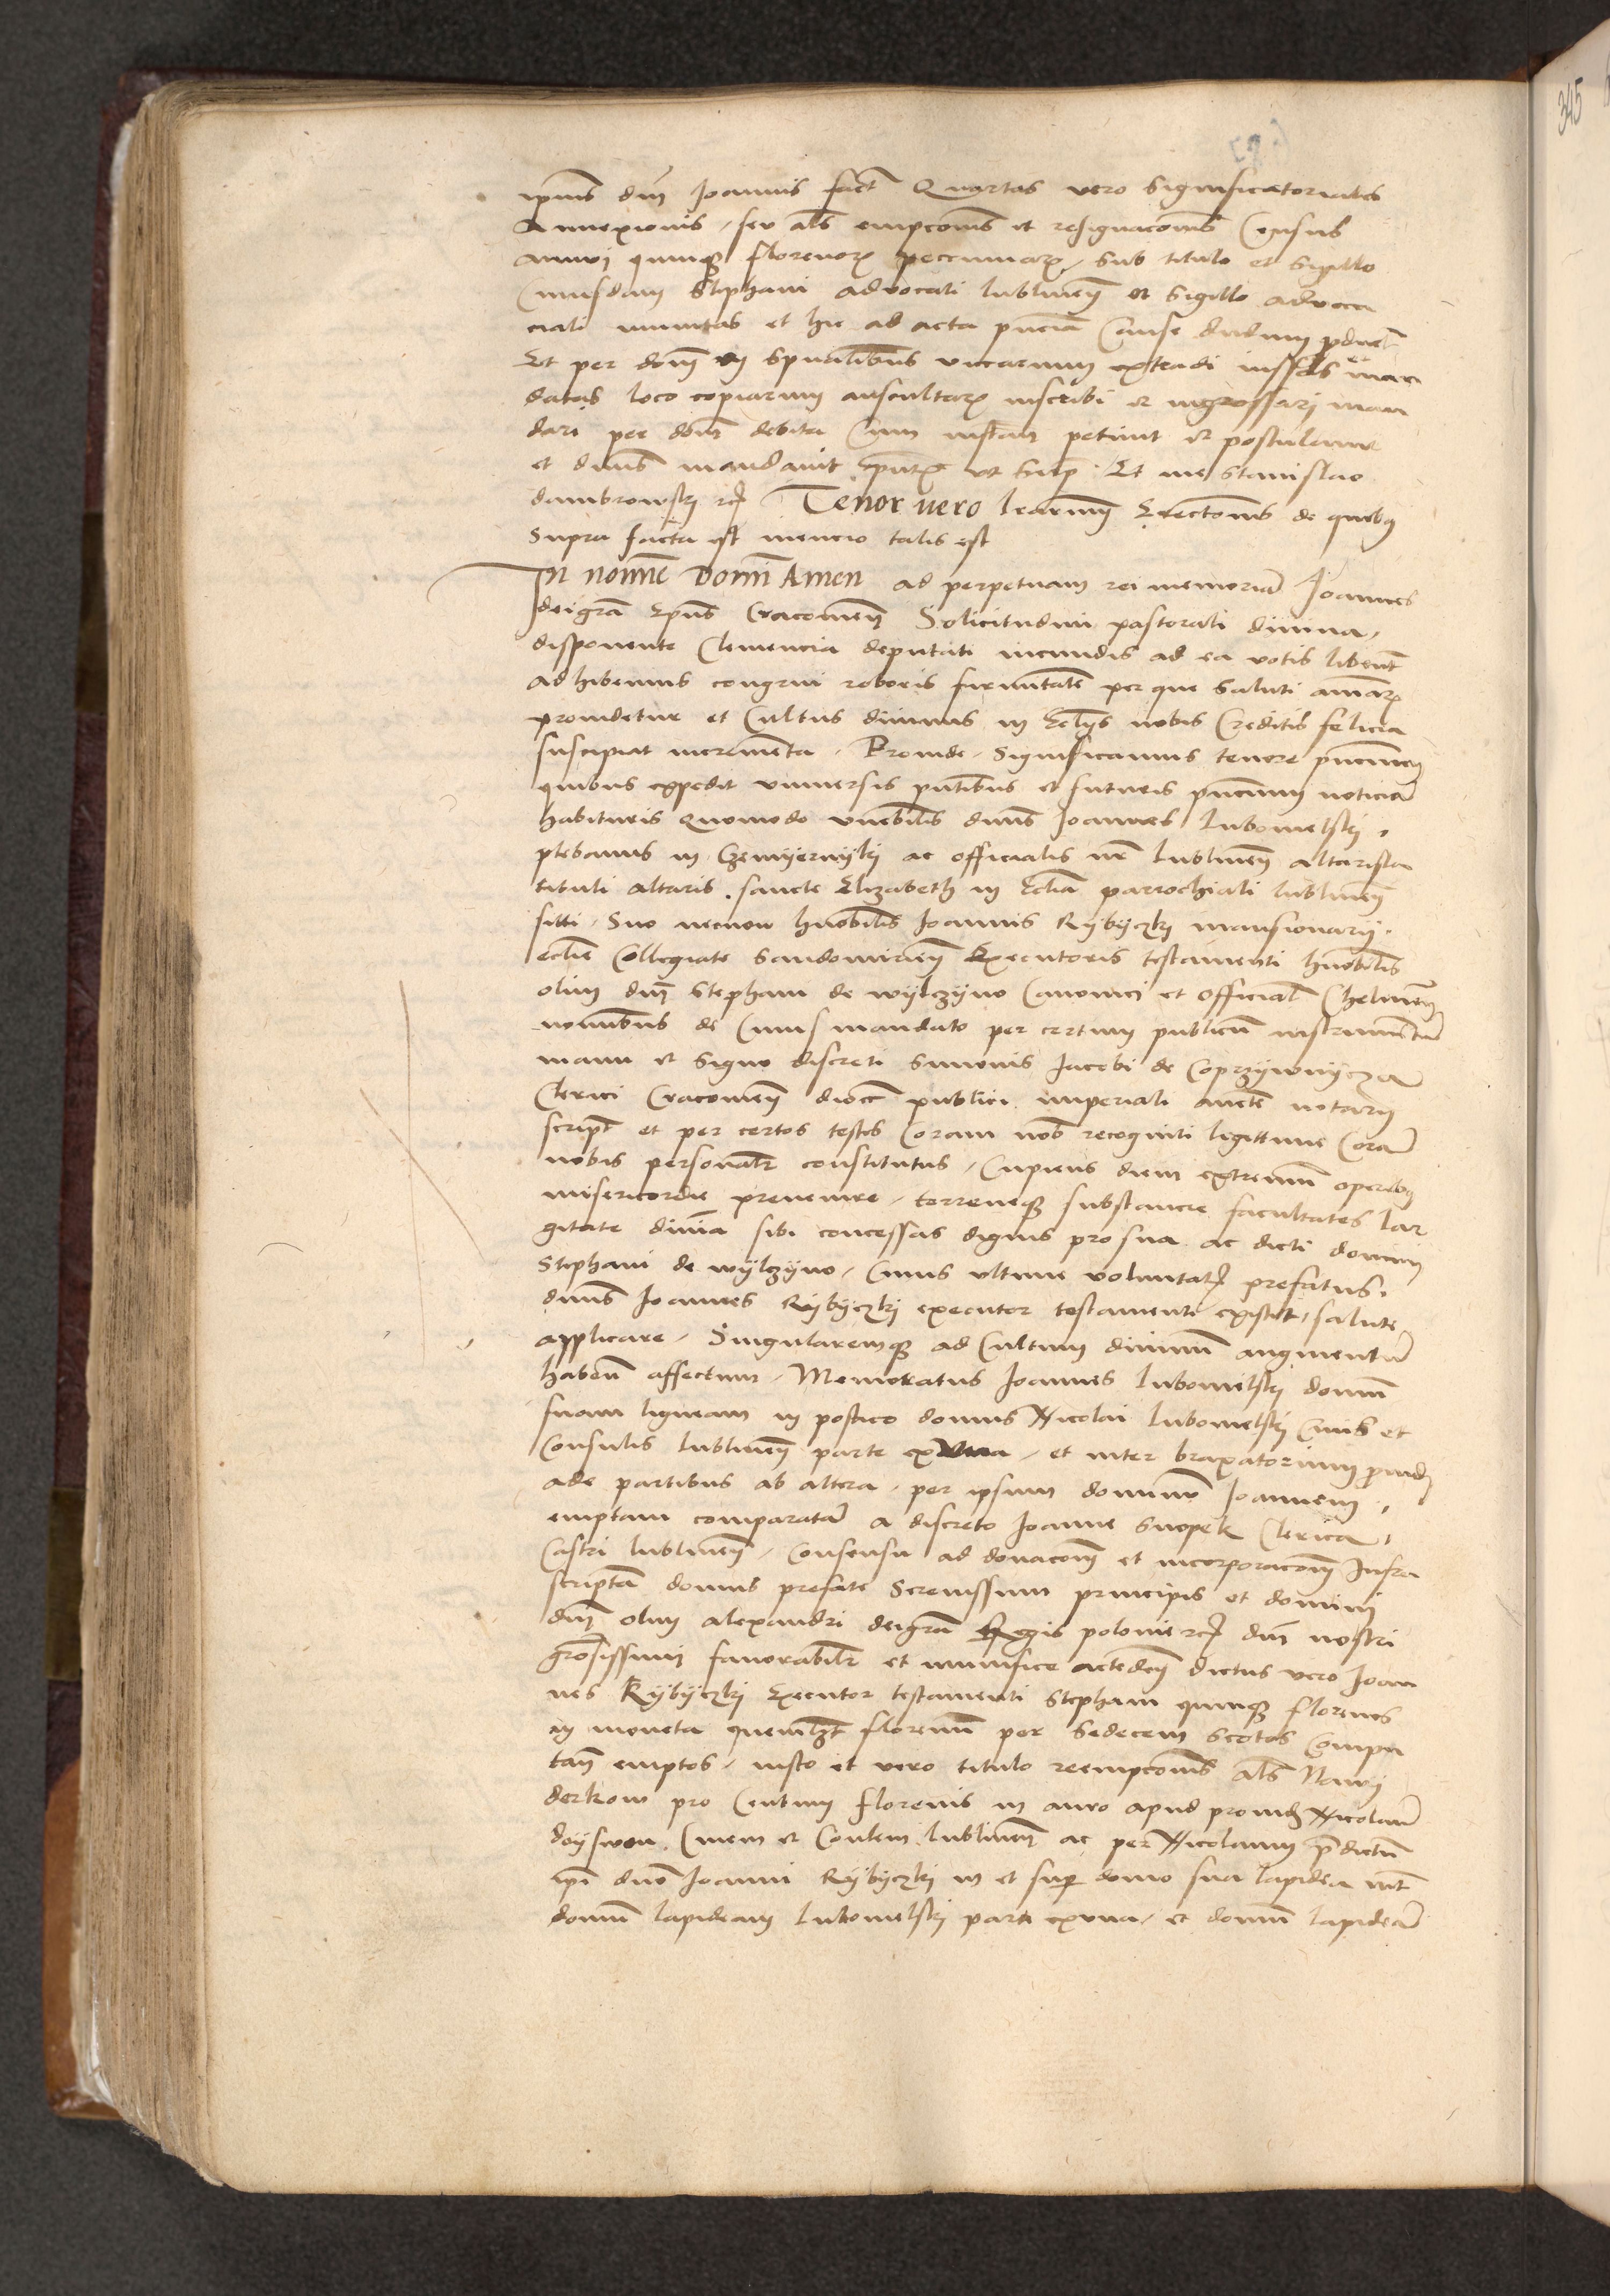 ipius dni Joannis fact Quartas vero Significatoriales
Annexionis, seu als empcionis et resignacionis Census
annui quinqz florenorz pecuniarz, sub titulo et Sigillo
Cuiusdam Stephani advocati lublineñ et Sigillo advoca
ciali munitas et hic ad acta pncia Cause dudum product
Et per dom in Spualibus vicarium extradi iussas et man
datas loco copiarum auscultarz inscribi et ingrossari man
dari per dom debita Cum instan petiint et postulant
et dnus mandavit pntz ut supra Et me Stanislao
dambrowski rcz Tenor vero lrarum Erectionis de quibus
Supra facta est mencio talis est
In nomine Domini Amen ad perpetuam rei memoriam Joannes
dei gra Epus Cracovieñ Solicitudini pastorali divina,
disponente Clemencia deputati iucundis ad ea votis libent
adhibemus congrui roboris firmitatem per que Saluti animarz
providetur et Cultus divinus in Ecliis nobis Creditis felicia
suscipiat incrementa. Proinde, Significamus tenore pncium
quibus expedit universis pntibus et futuris pncium noticiam
habituris Quomodo venebilis dnus Joannes lubomelski,
plebanus in Czemyernyky ac officialis nr lublineñ altarista
tituli altaris. sancte Elizabeth in Eclia parrochiali lublineñ
siti. Suo necnon honobilis Joannis Rybyczki mansionarii.
eclie Collegiate Sandomirieñ Executoris testamenti honobilis
olim dni Stephani de wylczyno Canonici et official Chelmeñ
nominibus de Cuius mandato per certum publicum instrumentum
manu et signo discreti Simonis Jacobi de Coprzywnycza
Clerici Cracovieñ dioc publici imperiali aucte notarii
script et per certos testes Coram nob recogniti legittime Coram
nobis personalr constitutus, Cupiens diem extremum operibus
misericordie prevenire, terreneqz substancie facultates lar
gitate divina sibi concessas dignis pro sua ac dicti domini
Stephani de wylczyno, Cuius ultime voluntatis prefatus.
dnus Joannes Rybyczki executor testamenti existit, salute
applicare, Singularemqz ad Cultum divinum augmentum
haben affectum, Memoratus Joannes lubomelski domum
suam ligneam in postico domus Nicolai lubomelski Civis et
Consulis lublineñ parte ex una, et inter braxatorium provid
ade partibus ab altera, per ipsum dominum Joannem,
emptam comparatam a discreto Joanne Snopek Clerico,
Castri lublineñ, Consensu ad donacionem et incorporacionem Infra
scriptam domus prefate Serenissimi principis et domini
dni olim alexandri dei gra Regis polonie rcz dni nostri
grosissimi favorabilr et munifice accedeñ dictus vero Joan
nes Rybyczki Executor testamenti Stephani quinqz florenos
in moneta quemlzt florenum per Sedecem Scotos Compu
tan emptos, iusto et vero titulo reempcionis als Nawy
derkow pro Centum florenis in auro apud provid Nicolaum
doyswon Civem et Conlem lublineñ ac per Nicolaum predictum
ipi dno Joanni Rybyczki in et sup domo sua lapidea int
domum lapideam lubomelski parte ex una, et domum lapideam